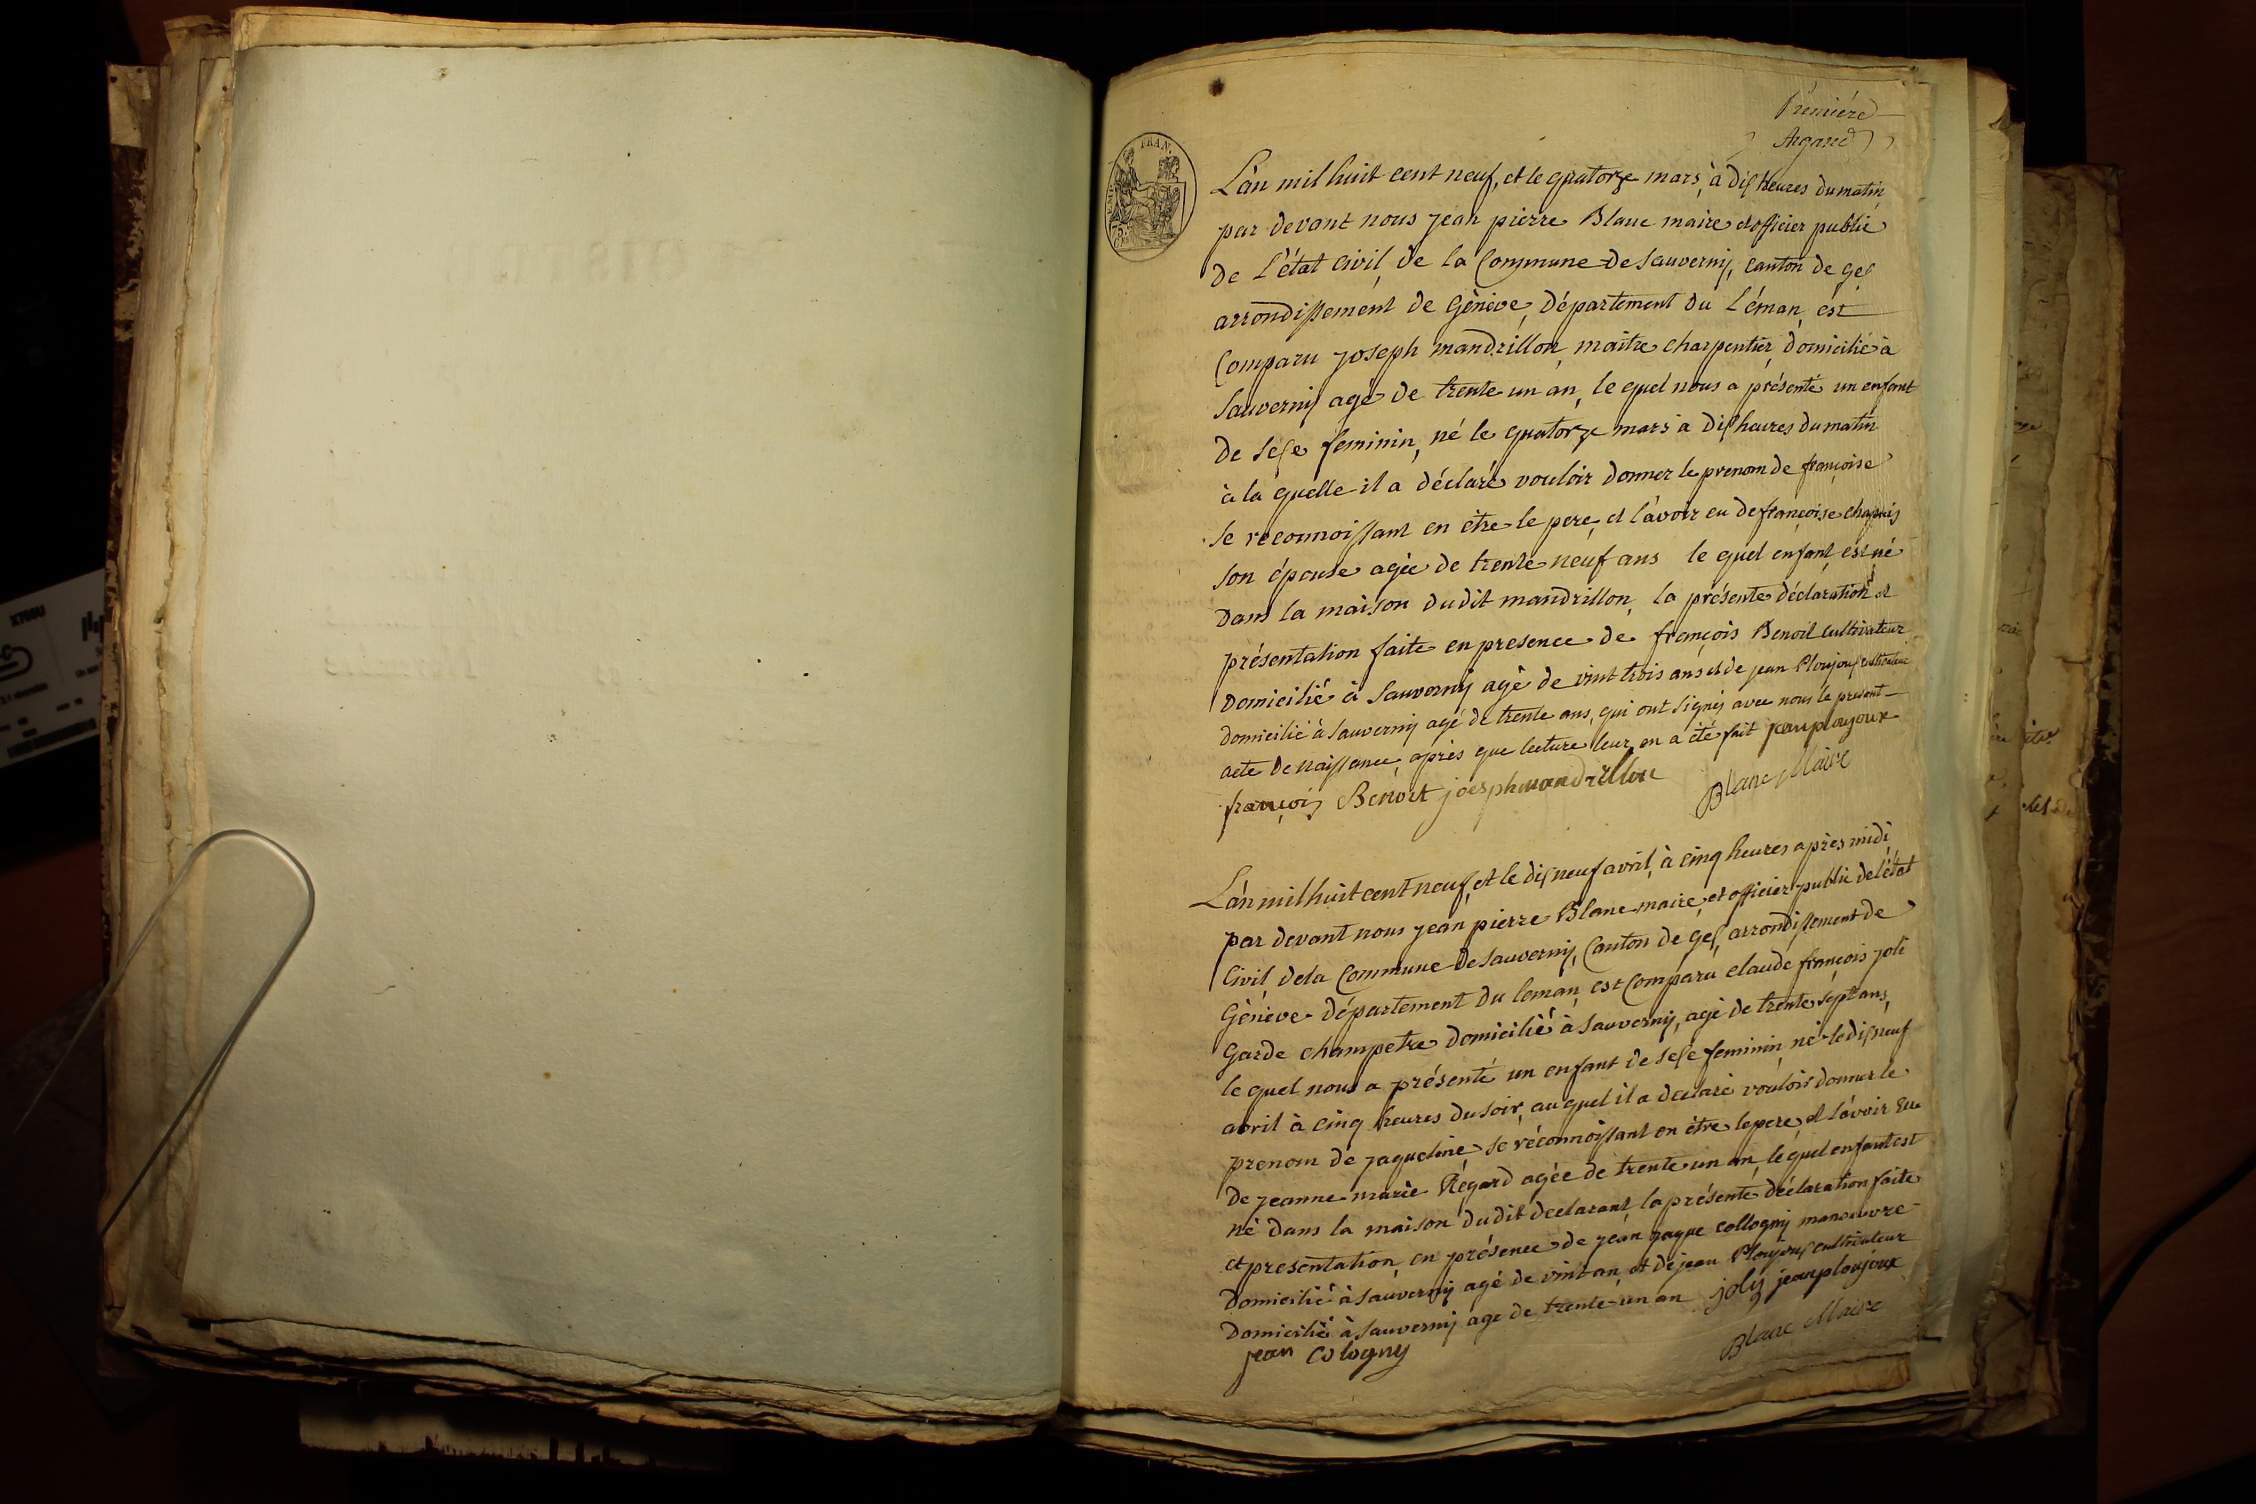 Premiére
Argand
L'an mil huit cent neuf, et le quatorze mars, à dix heures du matin
par devant nous jean pierre Blanc maire et officier public
de l'état civil, de la Commune de Sauverny, canton de gex
arrondissement de Gèneve, département du Léman, est
Comparu joseph mandrillon, maitre charpentier, domicilié à
Sauverny agé de trente un an, le quel nous a présenté un enfant
de sexe feminin, né le quatorze mars a dix heures du matin
à la quelle il a déclaré vouloir donner le prenom de françoise
se reconnoissant en être le pere, et l'avoir eu de françoise chapuis
son épouse agée de trente neuf ans le quel enfant est né
dans la maison dudit mandrillon, la présente déclaration et
présentation faite en presence de françois Benoit cultivateur
domicilié à Sauverny agé de vint trois ans et de jean Ploujoux cultivateur
domicilié à Sauverny agé de trente ans, qui ont signés avec nous le present
acte de naissance, après que lecture leur en a été fait jean ploujoux
françois Benoit joesph mandrillon Blanc Maire
L'an mil huit cent neuf, et le dix neuf avril, à cinq heures après midi
par devant nous jean pierre Blanc maire, et officier public de l'état
Civil, dela Commune de Sauverny, Canton de gex, arrondissement de
Gèneve département du leman, est Comparu claude françois joli
Garde champetre domicilié à Sauverny, agé de trente sept ans,
le quel nous a présenté un enfant de sexe feminin né le dix neuf
avril à cinq heures du soir, au quel il a declaré vouloir donner le
prenom de jaqueline, se réconnoissant en être le pere, et l'avoir eu
de jeanne marie Régard agée de trente un an, lequel enfant est
né dans la maison dudit declarant, la présente déclaration faite
et presentation, en présence de jean jaque collogny manoeuvre
domicilié à Sauverny agé de vint an, et de jean Ploujoux cultivateur
domicilié à Sauverny age de trente un an joly jean ploujoux
jean Cologny Blanc Maire